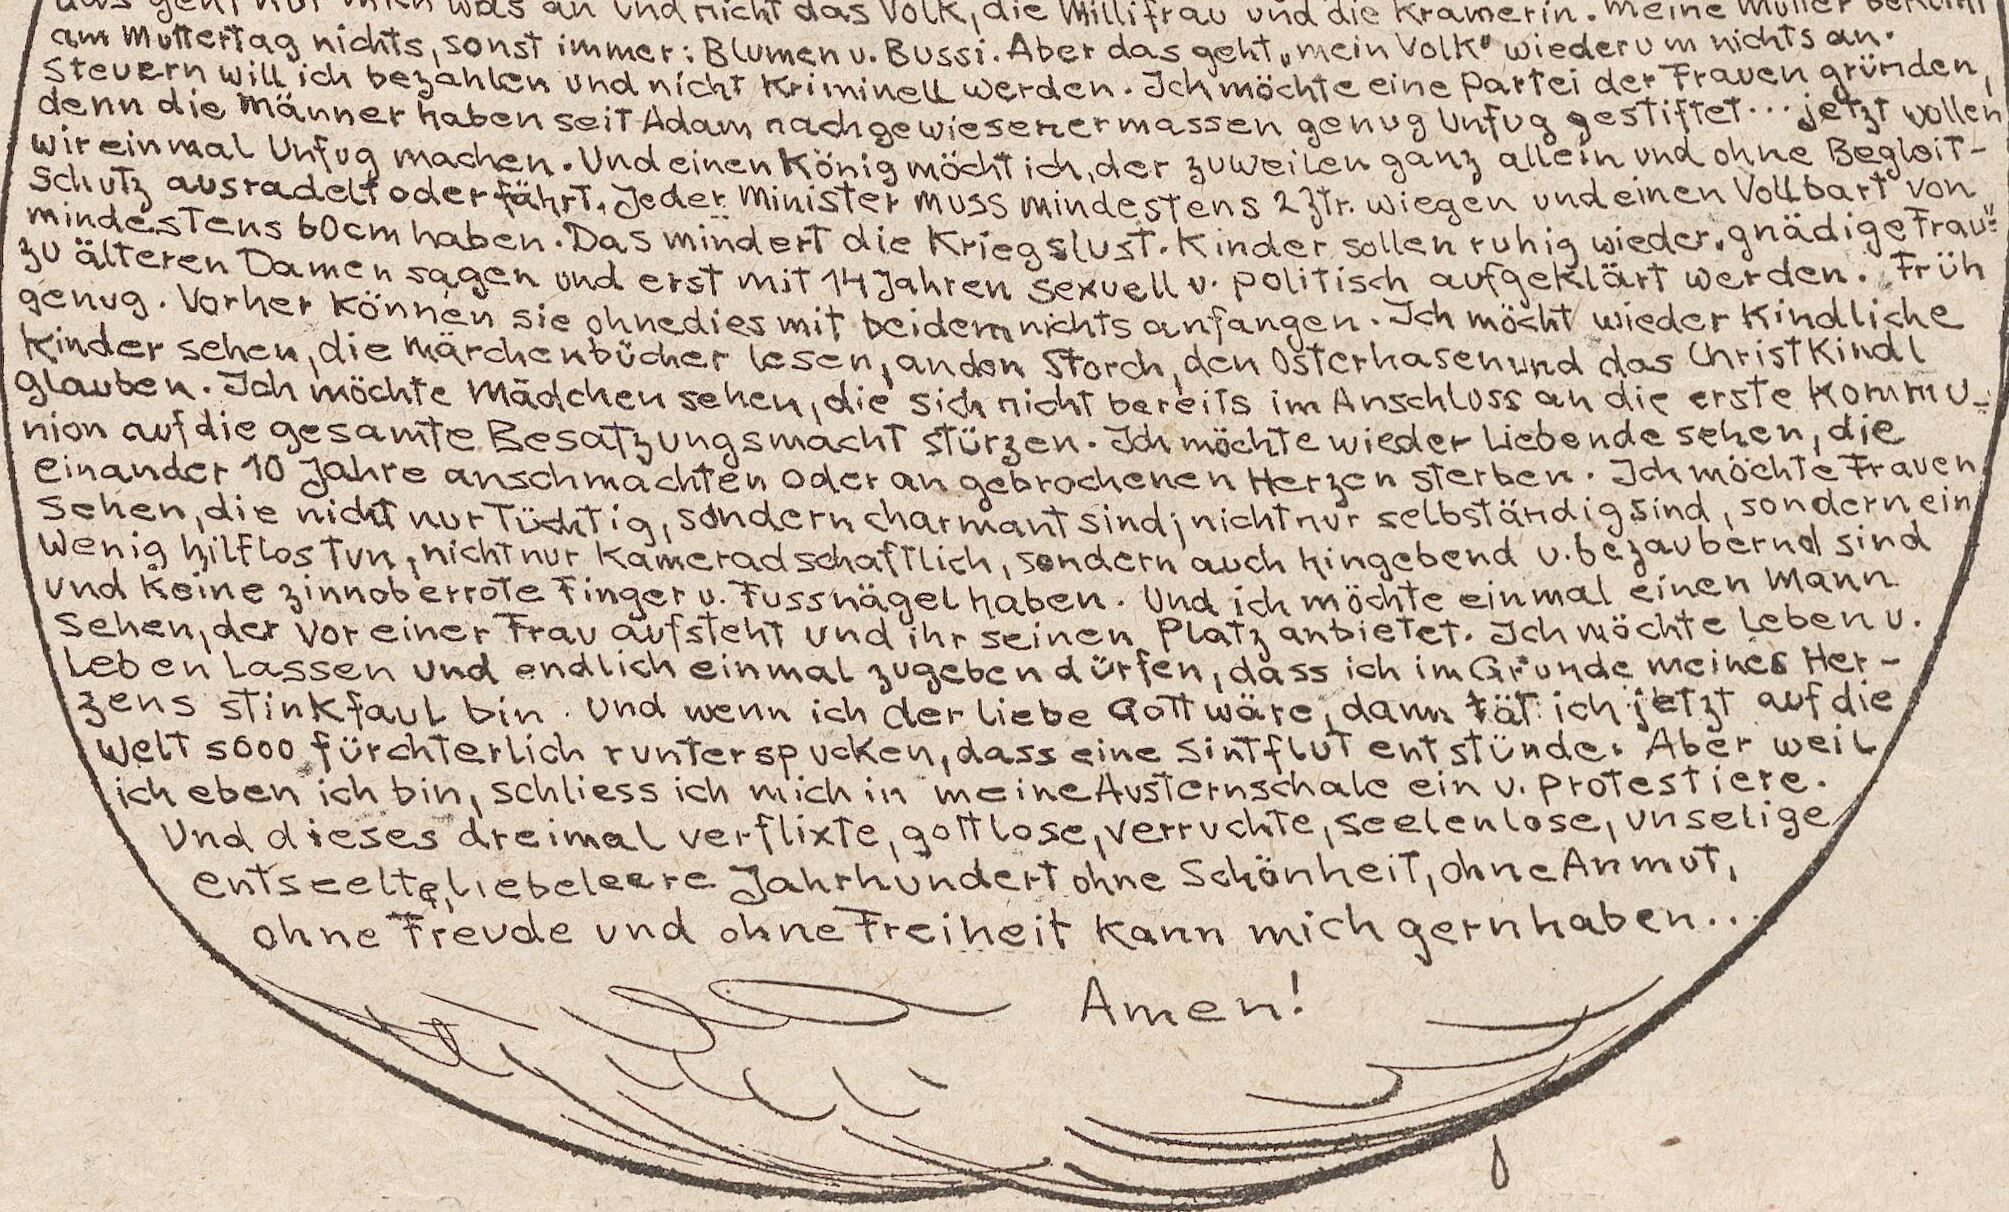 das geht nur mich was an und nicht das Volk, die Millifrau und die Kramerin. Meine Mutter bekommt
am Muttertag nichts, sonst immer: Blumen u. Bussi. Aber das geht „mein Volk" wiederum nichts an.
Steuern will ich bezahlen und nicht kriminell werden. Ich möchte eine Partei der Frauen gründen,
denn die Männer haben seit Adam nachgewiesenermassen genug Unfug gestiftet... jetzt wollen
wir einmal Unfug machen. Und einen König möcht ich, der zuweilen ganz allein und ohne Begleit-
schutz ausradelt oder fährt. Jeder Minister muss mindestens 2 Ztr. wiegen und einen Vollbart von
mindestens 60cm haben. Das mindert die Kriegslust. Kinder sollen ruhig wieder „gnädige Frau"
zu älteren Damen sagen und erst mit 14 Jahren sexuell u. politisch aufgeklärt werden. Früh
genug. Vorher können sie ohnedies mit beidem nichts anfangen. Ich möcht wieder kindliche
Kinder sehen, die Märchenbücher lesen, an den Storch, den Osterhasen und das Christkindl
glauben. Ich möchte Mädchen sehen, die sich nicht bereits im Anschluss an die erste Kommu-
nion auf die gesamte Besatzungsmacht stürzen. Ich möchte wieder Liebende sehen, die
einander 10 Jahre anschmachten oder an gebrochenen Herzen sterben. Ich möchte Frauen
sehen, die nicht nur tüchtig, sondern charmant sind; nicht nur selbständig sind, sondern ein
wenig hilflos tun, nicht nur kameradschaftlich, sondern auch hingebend u. bezaubernd sind
und keine zinnoberrote Finger u. Fussnägel haben. Und ich möchte einmal einen Mann
sehen, der vor einer Frau aufsteht und ihr seinen Platz anbietet. Ich möchte leben u.
leben lassen und endlich einmal zugeben dürfen, dass ich im Grunde meines Her-
zens stinkfaul bin. Und wenn ich der liebe Gott wäre, dann tät ich jetzt auf die
Welt sooo fürchterlich runterspucken, dass eine Sintflut entstünde. Aber weil
ich eben ich bin, schliess ich mich in meine Austernschale ein u. protestiere.
Und dieses dreimal verflixte, gottlose, verruchte, seelenlose, unselige
entseelte, liebeleere Jahrhundert ohne Schönheit, ohne Anmut,
ohne Freude und ohne Freiheit kann mich gernhaben...
Amen!